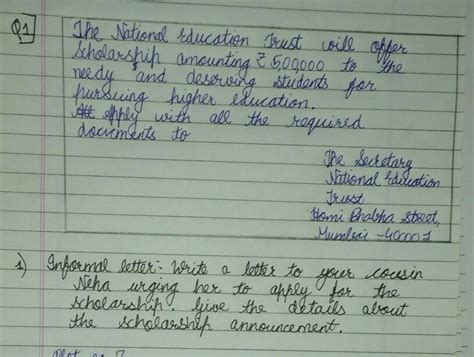 Q1
The National Education Trust will offer
Scholarship amounting ₹ 500,000 to the
needy and deserving students for
pursuing higher education.
Apply with all the required
documents to
The Secretary
National Education
Trust
Homi Bhabha Street,
Mumbai - 400001
1) Informal letter:- Write a letter to your cousin
Neha urging her to apply for the
scholarship. Give the details about
the scholarship announcement.